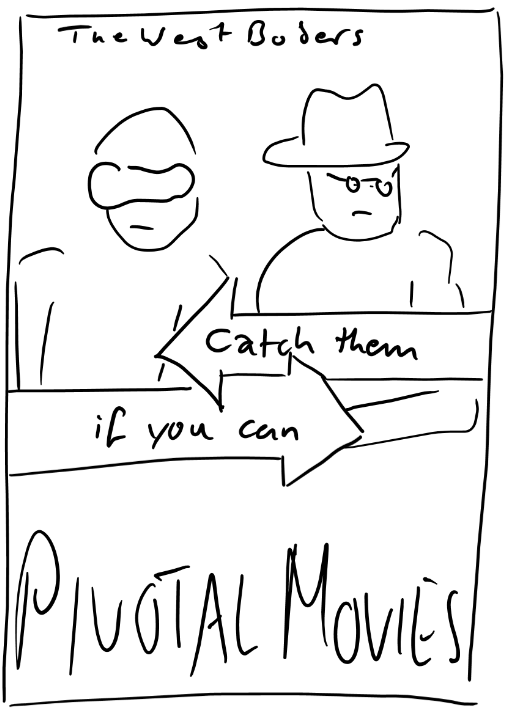 The West Boders
Catch them
if you can
PIVOTAL MOVIES